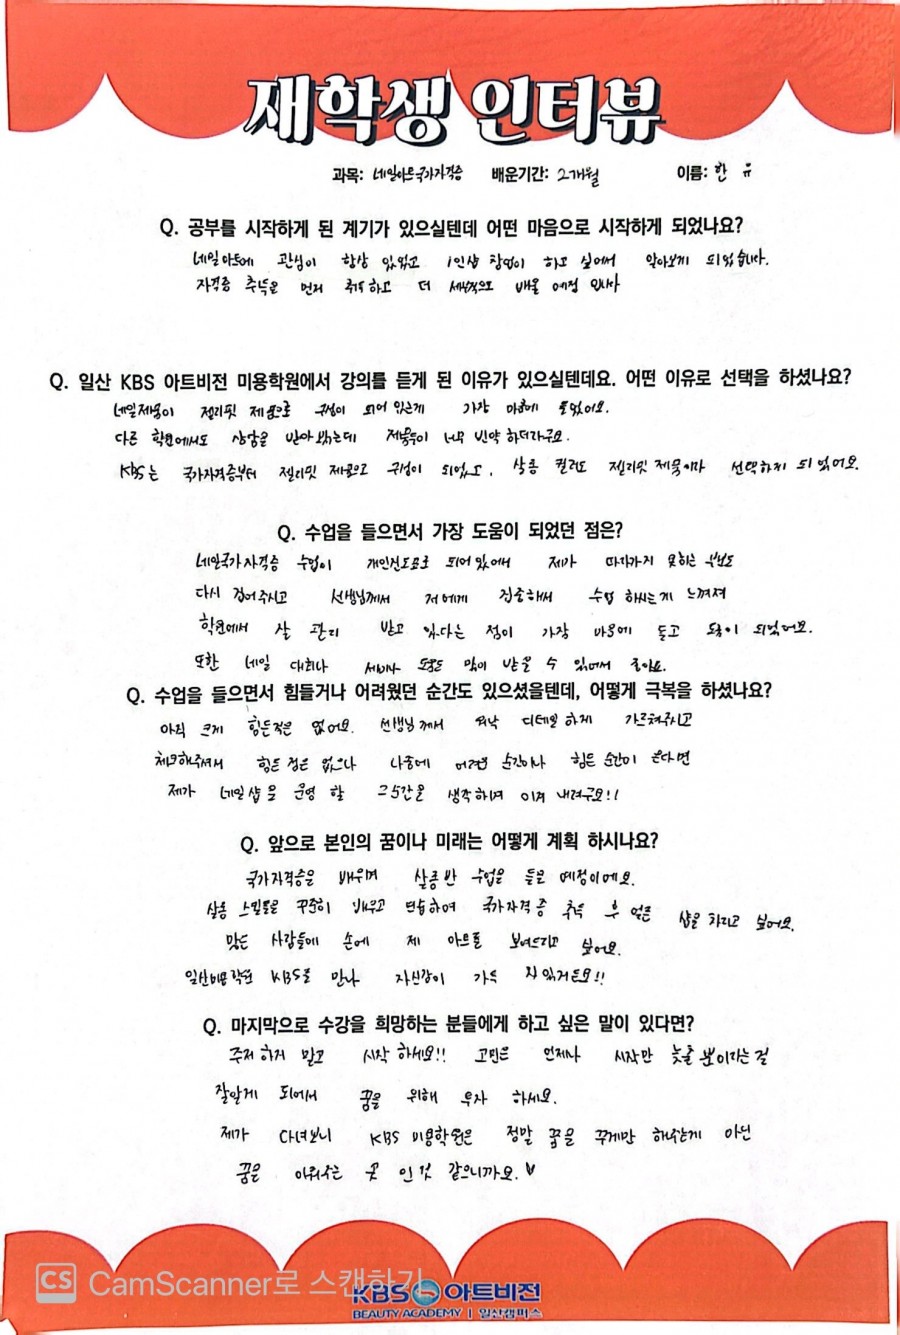 재학생 인터뷰
과목: 네일아트국가자격증 배운기간: 2개월 이름: 한 유
Q. 공부를 시작하게 된 계기가 있으실텐데 어떤 마음으로 시작하게 되었나요?
네일아트에 관심이 항상 있었고 1인샵 창업이 하고 싶어서 알아보게 되었습니다.
자격증 취득을 먼저 취득하고 더 세부적으로 배울 예정입니다
Q. 일산 KBS 아트비전 미용학원에서 강의를 듣게 된 이유가 있으실텐데요. 어떤 이유로 선택을 하셨나요?
네일제품이 젤리핏 제품으로 구성이 되어 있는게 가장 마음에 들었어요.
다른 학원에서도 상담을 받아 봤는데 제품들이 너무 빈약 하더라구요.
KBS는 국가자격증부터 젤리핏 제품으로 구성이 되었고, 살롱 컬러도 젤리핏 제품이라 선택하게 되었어요.
Q. 수업을 들으면서 가장 도움이 되었던 점은?
네일국가자격증 수업이 개인진도표로 되어있어서 제가 따라가지 못하는 부분도
다시 집어주시고 선생님께서 저에게 집중해서 수업 하시는게 느껴져
학원에서 잘 관리 받고 있다는 점이 가장 마음에 들고 도움이 되었어요.
또한 네일 대회나 세미나 도움도 많이 받을 수 있어서 좋아요.
Q. 수업을 들으면서 힘들거나 어려웠던 순간도 있으셨을텐데, 어떻게 극복을 하셨나요?
아직 크게 힘든적은 없어요. 선생님께서 워낙 디테일하게 가르쳐주시고
체크해주셔서 힘든 점은 없으나 나중에 어려운 순간이나 힘든 순간이 온다면
제가 네일샵을 운영 할 그 순간을 생각하며 이겨 내려구요!!
Q. 앞으로 본인의 꿈이나 미래는 어떻게 계획 하시나요?
국가자격증을 배우며 살롱반 수업을 들을 예정이에요.
살롱 스킬들을 꾸준히 배우고 연습하여 국가자격증 취득 후 얼른 샵을 차리고 싶어요.
많은 사람들에 손에 제 아트를 보여드리고 싶어요.
일산미용학원 KBS를 만나 자신감이 가득 차있거든요!!
Q. 마지막으로 수강을 희망하는 분들에게 하고 싶은 말이 있다면?
주저하지 말고 시작 하세요!! 고민은 언제나 시작만 늦출 뿐이라는 걸
잘알게 되어서 꿈을 위해 투자 하세요.
제가 다녀보니 KBS 미용학원은 정말 꿈을 꾸게만 해주는게 아닌
꿈을 이뤄주는 곳 인것 같으니까요.♥
CS CamScanner로 스캔하기
KBS 아트비전
BEAUTY ACADEMY | 일산캠퍼스